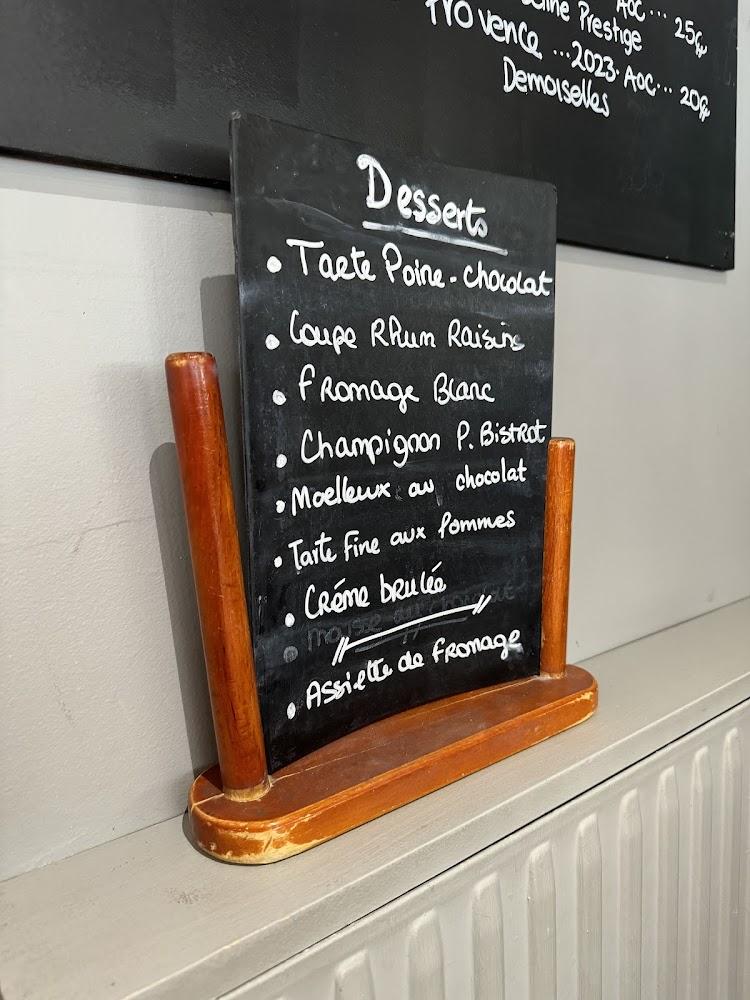 AOC... 25€
Prestige
Provence ...2023. AOC... 20€
Demoiselles
Desserts
• Tarte Poire - chocolat
• Coupe Rhum Raisins
• Fromage Blanc
• Champignon P. Bistrot
• Moelleux au chocolat
• Tarte Fine aux Pommes
• Créme brulée
• Assiette de Fromage